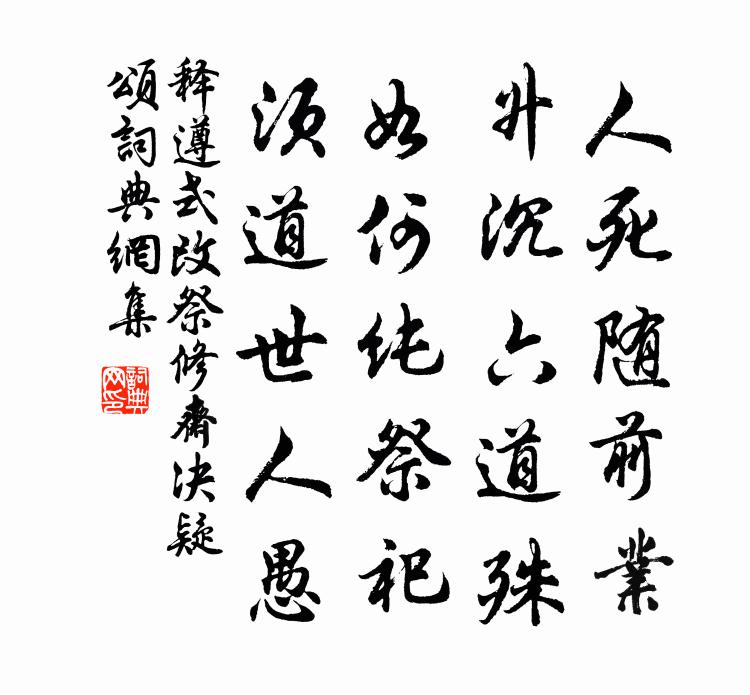 人死随前業
升沉六道殊
如何纯祭祀
须道世人愚
释遵式改祭修齋决疑
頌詞典網集
詞典
网印